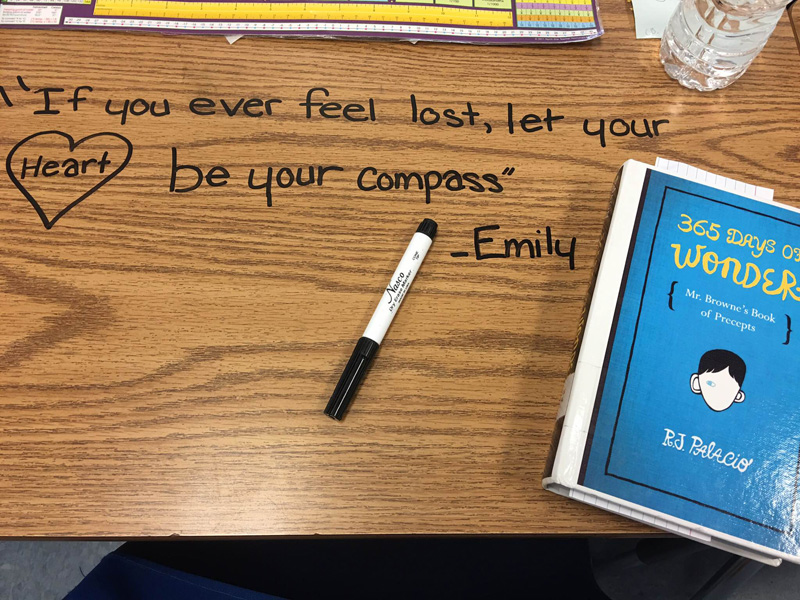 "If you ever feel lost, let your
Heart be your compass"
-Emily
Nasco
Dry Erase Marker
365 DAYS OF
WONDER
{ Mr. Browne's Book
of Precepts }
R.J. PALACIO